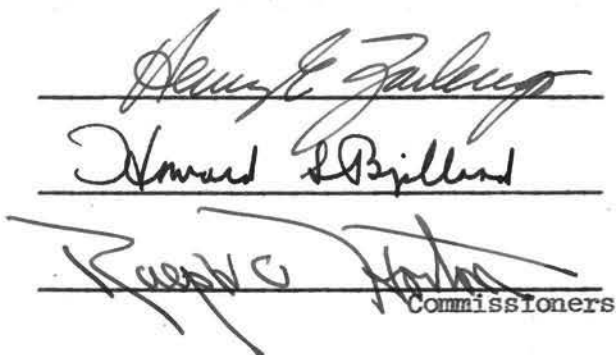 Henry E. Zarlengo
Howard S Bjelland
Ralph C Horton
Commissioners